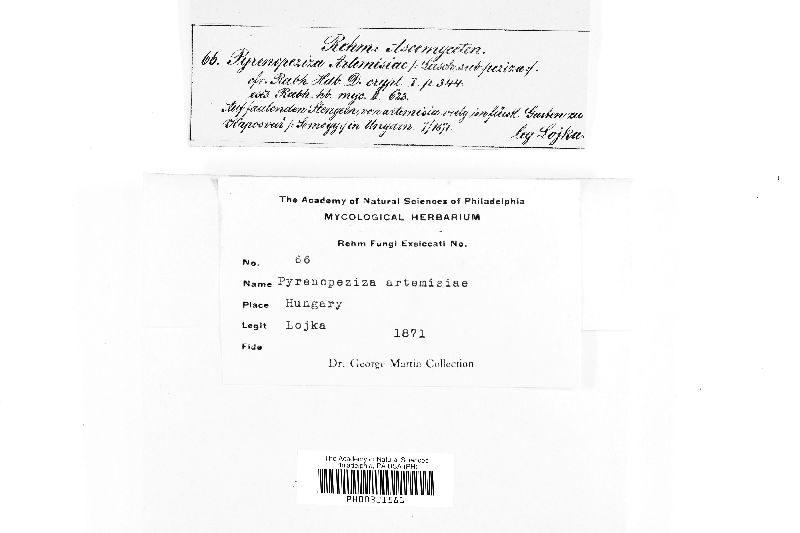 Rehm: Ascomyceten.
66. Pyrenopeziza Artemisiae (: Lasch sub peziza:).
cfr. Rabh. Hdb. D. crypt. I. p. 344.
exs. Rabh. hb. myc. II. 623.
Auf faulenden Stengeln von artemisia vulg. im fürstl. Garten zu
Kaposvár (: Somogy:) in Ungarn. 1871.
leg Lojka.
The Academy of Natural Sciences of Philadelphia
MYCOLOGICAL HERBARIUM
Rehm Fungi Exsiccati No.
No. 66
Name Pyrenopeziza artemisiae
Place Hungary
Legit Lojka
1871
Fide
Dr. George Martin Collection
The Academy of Natural Sciences
Philadelphia, PA USA (PH)